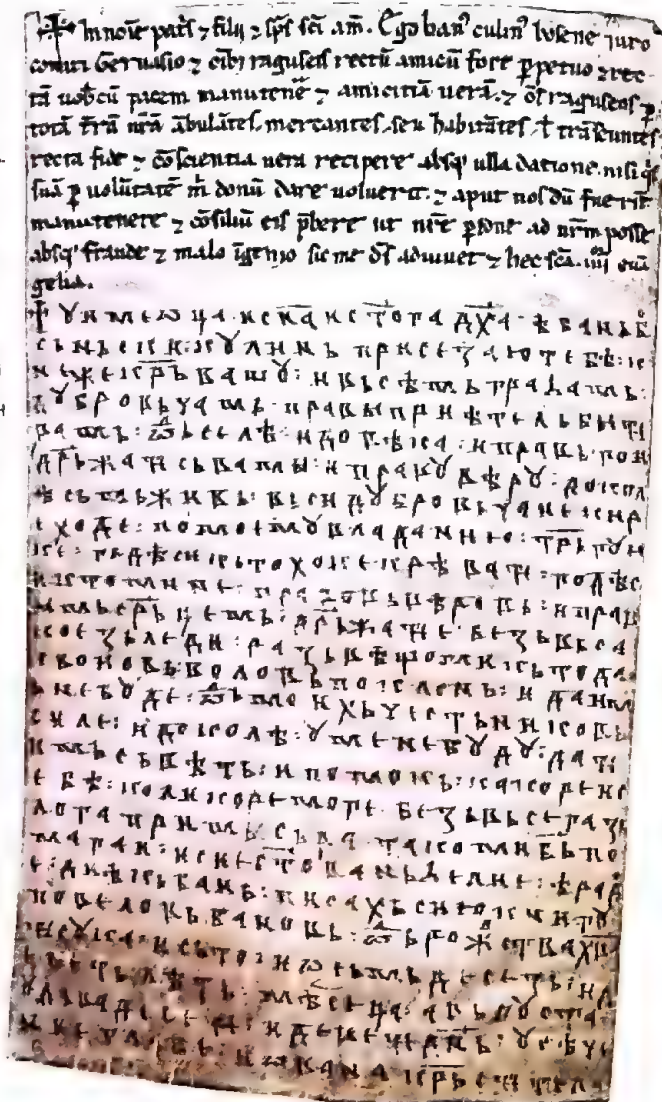 ✝ In noīe patͥs ⁊ filii ⁊ sp̄s sc̄i am̄. Ego banꝰ culinꝰ bosene iuro
comiti Geruasio ⁊ oīb; raguseis rectū amicū fore ꝑpetuo ⁊ rec
tā uobcū pacem manutenē ⁊ amicitiā uerā. ⁊ oēs raguseos ꝑ
totā t̄rā n̄rā ābulātes. mercantes. seu habitātes. ł trāseuntes
recta fide ⁊ cōscientia uera recipere absqꝫ ulla datione. nisi qͥs
suā ꝑ uolūtatē m̄ donū dare uoluerit. ⁊ aput nos dū fuerīt
manutenere ⁊ cōsiliū eis p̄bere ut nr̄e ꝑsone ad nrm̄ posse
absqꝫ fraude ⁊ malo īgenio sic me ds̄ adiuuet ⁊ hec sc̄a. iiii euā
gelia.
✝ У име ѡца и сн҃а и ст҃ога дх҃а ѣ бань б
осьньски: кулинь присезаю тебѣ: к
неже крьвашу: и вьсѣмь грагамь:
дубровьчамь правы приѣтель бити
вамь: ѿ селѣ: и довѣка: и правь гои
дрьжати сь вами: и праву вѣру: докола
ѣсьмь живь: вьси дубровьчане кире
ходе: по моему владанию: трьгую
ке: гдѣ си кьто хоке крѣвати: годѣ с
и кто мине: правовь вѣровь: и правы
мь срьцемь: дрьжати е: безь вьсак
ое зьледи: развѣ що ми кьто да
своиовь воловь поклонь: и да им
ь не боде: ѿ моихь чьстьниковь
силе: и доколѣ: у мене буду: дати
имь сьвѣть: и помокь: какоре и с
ебѣ: коликоре море безь вьсега зь
лога примысьла тако ми бь по
магаи: и сие сто еваньгелие: ѣ рад
ое: диѣкь бань: писахь сию книгу
повеловь бановь: ѿ рожства хва
тисука: и сьто: и ѡсьмьдесеть: и де
веть лѣть: мѣсеца: авьгуста
дьвадесети: и девети дьнь: усѣче
ние главе: иована крьстителѣ